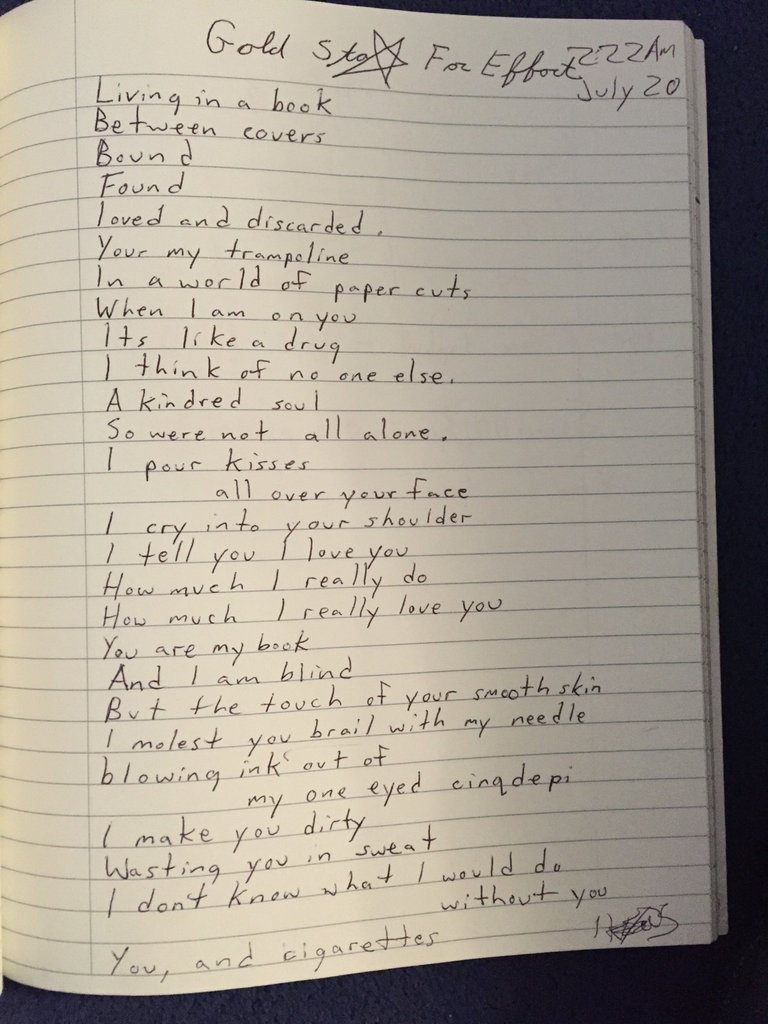 Gold Sta☆ For Effort 222Am
July 20
Living in a book
Between covers
Bound
Found
loved and discarded.
Your my trampoline
In a world of paper cuts
When I am on you
Its like a drug
I think of no one else.
A kindred soul
So were not all alone.
I pour kisses
all over your face
I cry into your shoulder
I tell you I love you
How much I really do
How much I really love you
You are my book
And I am blind
But the touch of your smooth skin
I molest you brail with my needle
blowing ink out of
my one eyed cinqdepi
I make you dirty
Wasting you in sweat
I don't know what I would do
without you
You, and cigarettes